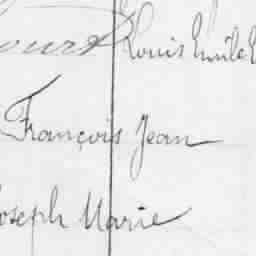 Louis Emile
François Jean
Joseph Marie